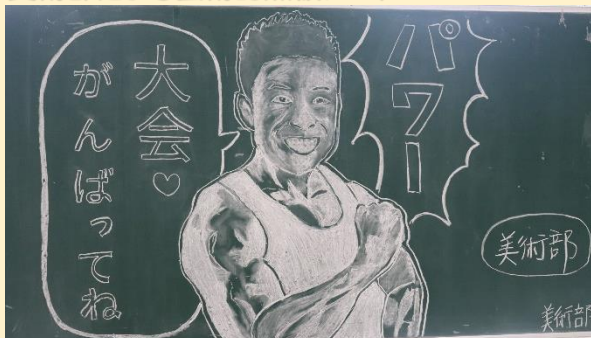 パワー
大会♡
がんばってね
美術部
美術部